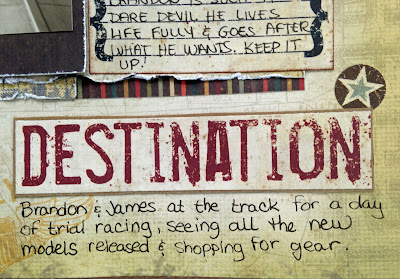 BRANDON IS SUCH
DARE DEVIL HE LIVES
LIFE FULLY & GOES AFTER
WHAT HE WANTS. KEEP IT
UP!
DESTINATION
Brandon & James at the track for a day
of trial racing, seeing all the new
models released & shopping for gear.